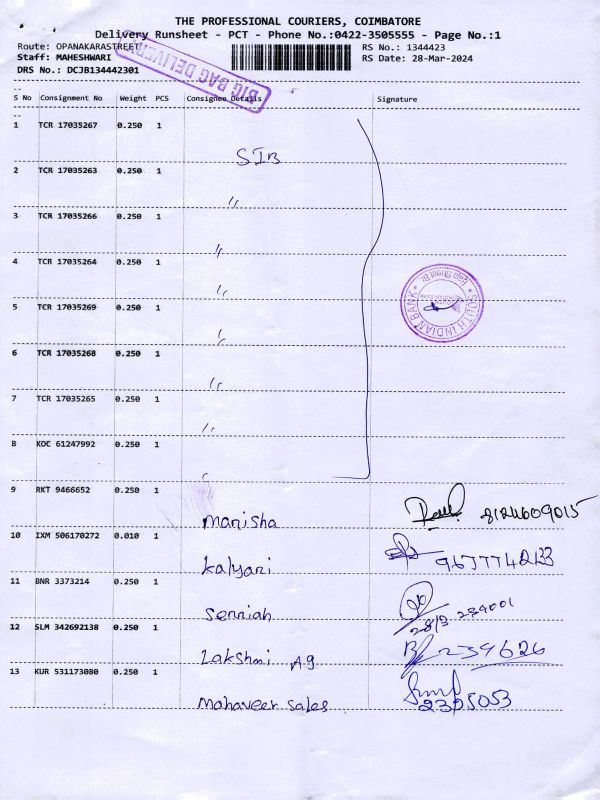 THE PROFESSIONAL COURIERS, COIMBATORE
Delivery Runsheet - PCT - Phone No.:0422-3505555 - Page No.:1
Route: OPANAKARASTREET RS No.: 1344423
Staff: MAHESHWARI RS Date: 28-Mar-2024
DRS No.: DCJB134442301
BIG BAG DELIVERY
S No Consignment No Weight PCS Consignee Details Signature
1 TCR 17035267 0.250 1
SIB
2 TCR 17035263 0.250 1
"
3 TCR 17035266 0.250 1
"
4 TCR 17035264 0.250 1
"
SOUTH INDIAN BANK
5 TCR 17035269 0.250 1
"
6 TCR 17035268 0.250 1
"
7 TCR 17035265 0.250 1
"
8 KOC 61247992 0.250 1
9 RKT 9466652 0.250 1
Manisha 8124609015
10 IXM 506170272 0.010 1
Kalyani 9677742133
11 BNR 3373214 0.250 1
28/3 234001
12 SLM 342692138 0.250 1
Lakshmi A9 239626
13 KUR 531173080 0.250 1
Mahaveer Sales 2395053